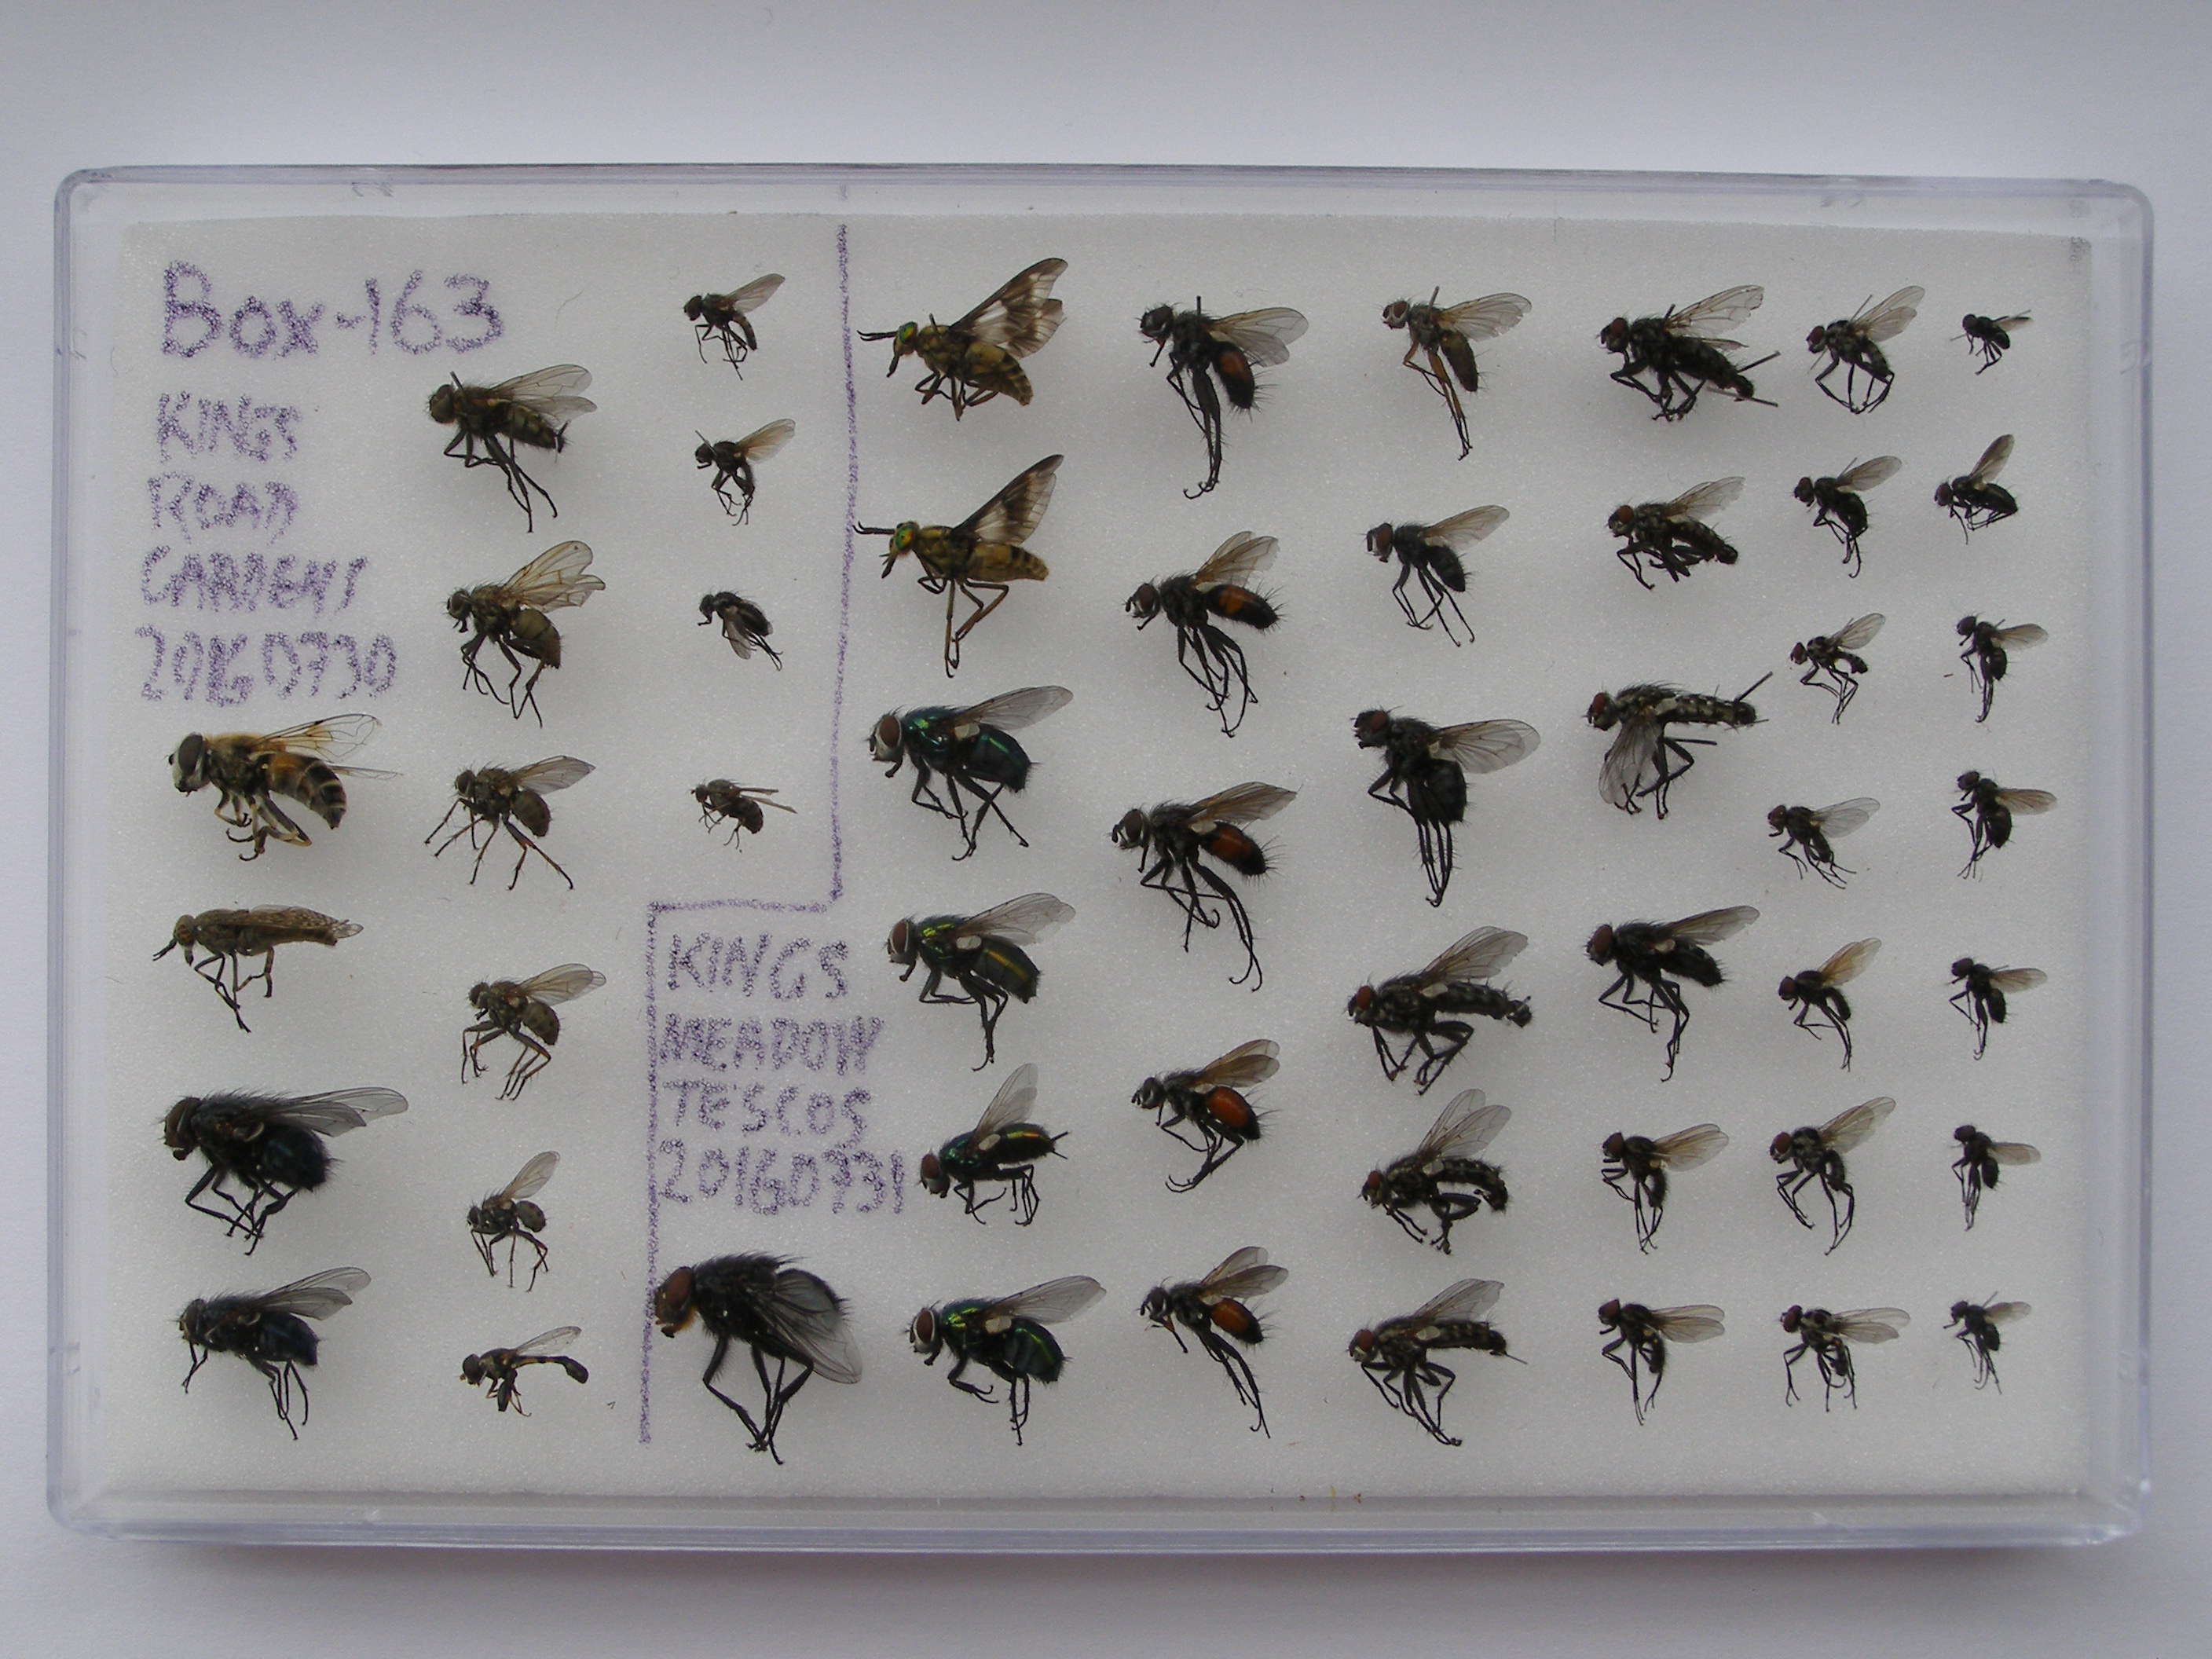 Box-163
KINGS
ROAD
GARDENS
20160730
KINGS
MEADOW
TESCOS
20160731